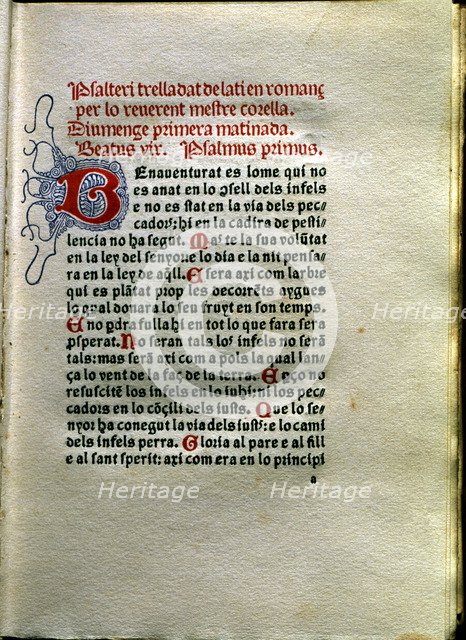 Psalteri trelladat de lati en romanç
per lo reuerent mestre corella.
Diumenge primera matinada.
Beatus vir. Psalmus primus.
BEnauenturat es lome qui no
es anat en lo cõsell dels infels
e no es stat en la via dels pec-
cadors; hi en la cadira de pesti-
lencia no ha segut. Mas te la sua volũtat
en la ley del senyor e lo dia e la nit pensa-
ra en la ley de aq̃ll. E sera axi com larbre
qui es plãtat prop les decorrẽts aygues
lo qual donara lo seu fruyt en son temps.
E no pdra fulla hi en tot lo que fara sera
psperat. No seran tals los infels no serã
tals: mas serã axi com a pols la qual lan-
ça lo vent de la faç de la terra. E p aço no
resuscitẽ los infels en lo iuhi: ni los pec-
cadors en lo cõcili dels iusts. Que lo se-
nyor ha conegut la via dels iusts: e lo cami
dels infels perra. Gloria al pare e al fill
e al sant sperit: axi com era en lo principi
a
Heritage Heritage Heritage
Heritage Heritage